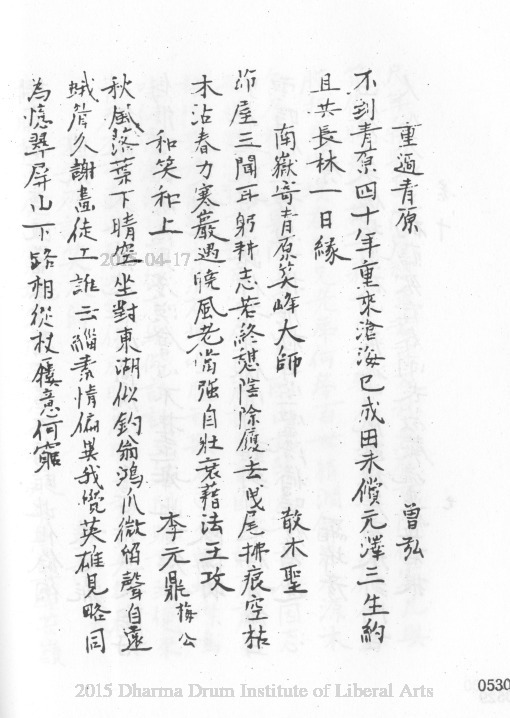 重過青原 曾弘
不到青原四十年重來滄海已成田未償元澤三生約
且共長林一日緣
南嶽寄青原笑峰大師 散木聖
茆屋三間耳躬耕志若終陰除履去曳尾拂痕空枯
木沾春力寒巖遇曉風老當強自壯衰藉法王攻
和笑和上 李元鼎梅公
秋風落葉下晴空坐對東湖似釣翁鴻爪微留聲自遠
蛾久謝畫徒工誰云緇素情偏異我覺英雄見略同
為憶翠屏山下路相從杖屨意何窮
2015-04-17
0530
2015 Dharma Drum Institute of Liberal Arts